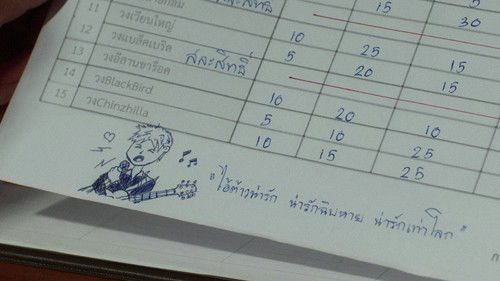 สละสิทธิ์ 15 30
11 วงเวียนใหญ่ 10 25 15
12 วงแบล็คเบริด 5 20 15
13 วงอีสานชาร็อค สละสิทธิ์
14 วงBlackBird 10 20 10
15 วงChinzhilla 5 10 25
10 15 25
"ไอ้ต้าวน่ารัก น่ารักฉิบหาย น่ารักเท่าโลก"